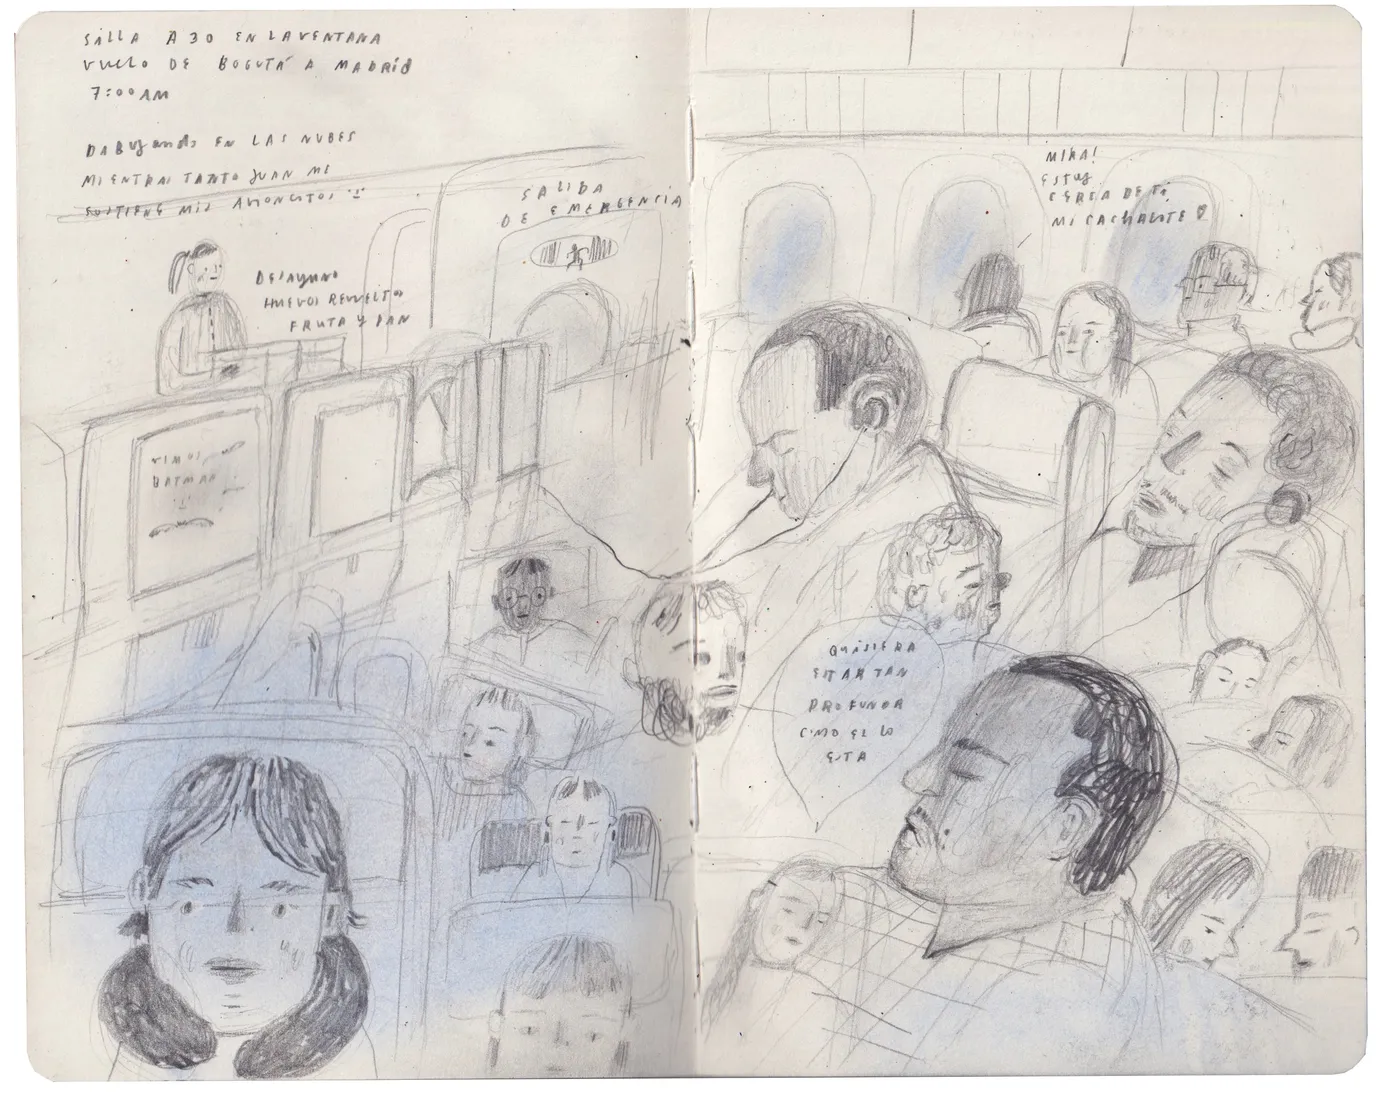 SILLA A30 EN LA VENTANA
VUELO DE BOGOTÁ A MADRID
7:00 AM
DIBUJANDO EN LAS NUBES
MIENTRAS TANTO JUAN ME
SOSTIENE MIS
SALIDA
DE EMERGENCIA
DESAYUNO
HUEVOS REVUELTOS
FRUTA Y PAN
VIMOS
BATMAN
MIRA!
ESTOY
CERCA DE TI,
MI CACHALOTE
QUISIERA
ESTAR TAN
PROFUNDA
COMO EL LO
ESTA